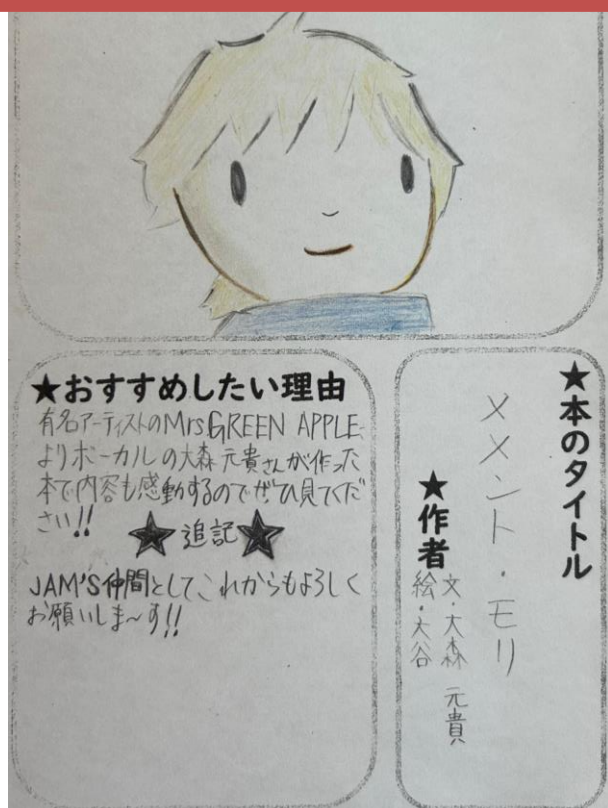 ★本のタイトル
メメント・モリ
★作者
文・大森 元貴
絵・大谷
★おすすめしたい理由
有名アーティストのMrs GREEN APPLE
よりボーカルの大森元貴さんが作った
本で内容も感動するのでぜひ見てくだ
さい!!
★追記★
JAM'S仲間としてこれからもよろしく
お願いしま〜す!!